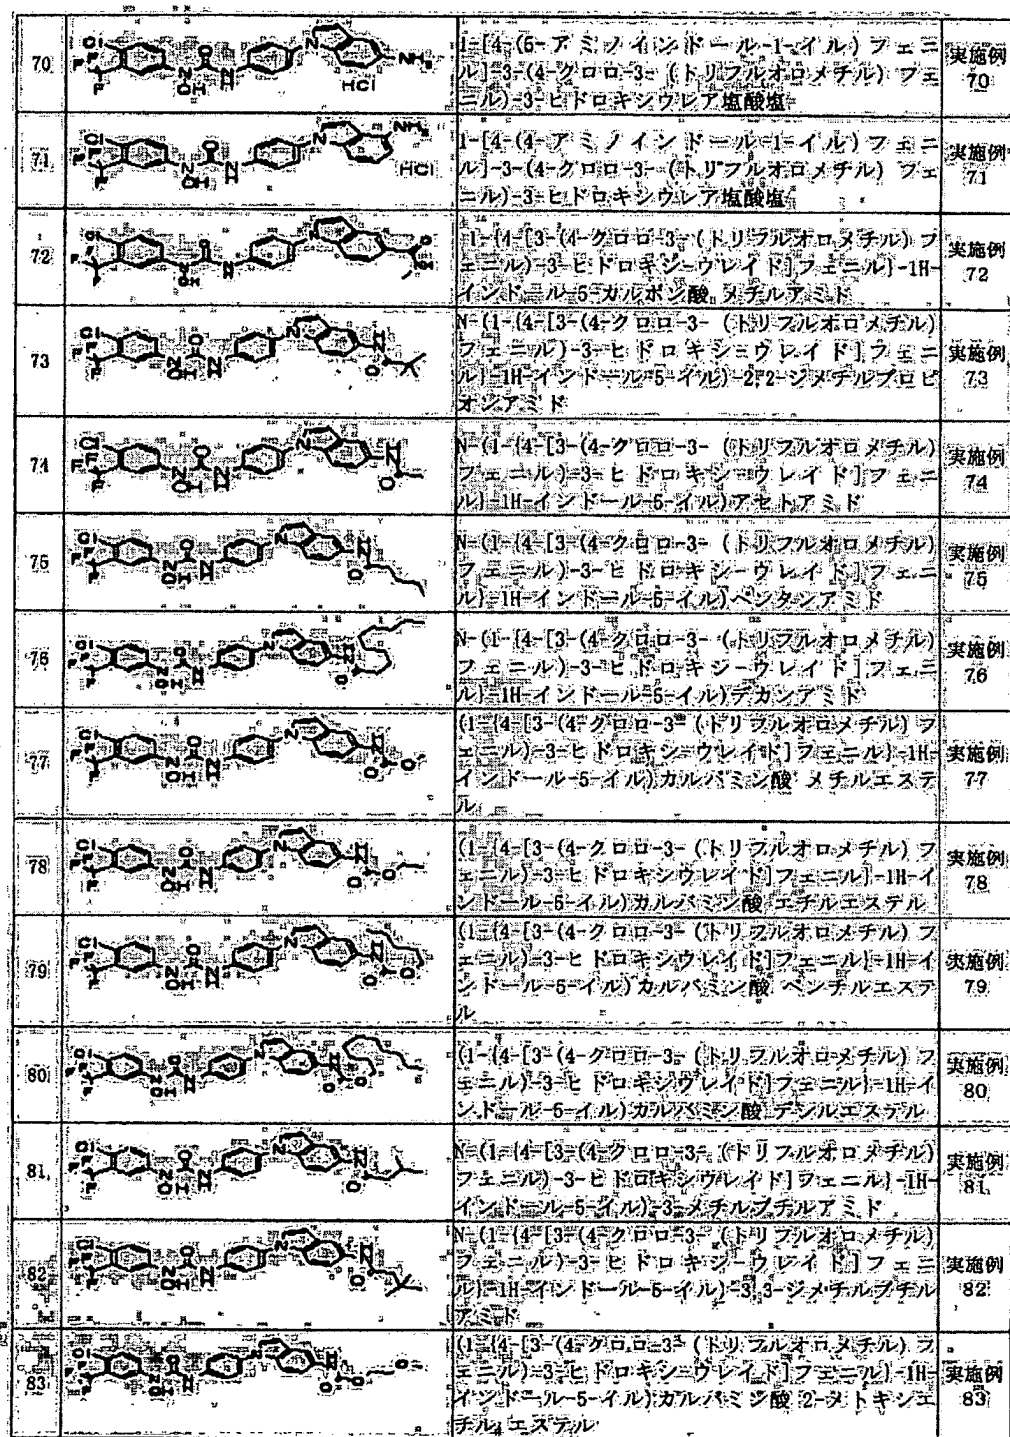 70
1-[4-(5-アミノインドール-1-イル) フェニ
ル]-3-(4-クロロ-3- (トリフルオロメチル) フェ
ニル)-3-ヒドロキシウレア塩酸塩
実施例
70
HCl
71
1-[4-(4-アミノインドール-1-イル) フェニ
ル]-3-(4-クロロ-3- (トリフルオロメチル) フェ
ニル)-3-ヒドロキシウレア塩酸塩
実施例
71
HCl
72
1-{4-[3-(4-クロロ-3- (トリフルオロメチル) フ
ェニル)-3-ヒドロキシ-ウレイド]フェニル}-1H-
インドール-5-カルボン酸 メチルアミド
実施例
72
73
N-(1-{4-[3-(4-クロロ-3- (トリフルオロメチル)
フェニル)-3-ヒドロキシ-ウレイド]フェニ
ル}-1H-インドール-5-イル)-2,2-ジメチルプロピ
オンアミド
実施例
73
74
N-(1-{4-[3-(4-クロロ-3- (トリフルオロメチル)
フェニル)-3-ヒドロキシ-ウレイド]フェニ
ル}-1H-インドール-5-イル)アセトアミド
実施例
74
75
N-(1-{4-[3-(4-クロロ-3- (トリフルオロメチル)
フェニル)-3-ヒドロキシ-ウレイド]フェニ
ル}-1H-インドール-5-イル)ペンタンアミド
実施例
75
76
N-(1-{4-[3-(4-クロロ-3- (トリフルオロメチル)
フェニル)-3-ヒドロキシ-ウレイド]フェニ
ル}-1H-インドール-5-イル)デカンアミド
実施例
76
77
(1-{4-[3-(4-クロロ-3- (トリフルオロメチル) フ
ェニル)-3-ヒドロキシ-ウレイド]フェニル}-1H-
インドール-5-イル)カルバミン酸 メチルエステ
ル
実施例
77
78
(1-{4-[3-(4-クロロ-3- (トリフルオロメチル) フ
ェニル)-3-ヒドロキシウレイド]フェニル}-1H-イ
ンドール-5-イル)カルバミン酸 エチルエステル
実施例
78
79
(1-{4-[3-(4-クロロ-3- (トリフルオロメチル) フ
ェニル)-3-ヒドロキシウレイド]フェニル}-1H-イ
ンドール-5-イル)カルバミン酸 ペンチルエステ
ル
実施例
79
80
(1-{4-[3-(4-クロロ-3- (トリフルオロメチル) フ
ェニル)-3-ヒドロキシウレイド]フェニル}-1H-イ
ンドール-5-イル)カルバミン酸 デシルエステル
実施例
80
81
N-(1-{4-[3-(4-クロロ-3- (トリフルオロメチル)
フェニル)-3-ヒドロキシウレイド]フェニル}-1H-
インドール-5-イル)-3-メチルブチルアミド
実施例
81
82
N-(1-{4-[3-(4-クロロ-3- (トリフルオロメチル)
フェニル)-3-ヒドロキシ-ウレイド]フェニ
ル}-1H-インドール-5-イル)-3,3-ジメチルブチル
アミド
実施例
82
83
(1-{4-[3-(4-クロロ-3- (トリフルオロメチル) フ
ェニル)-3-ヒドロキシ-ウレイド]フェニル}-1H-
インドール-5-イル)カルバミン酸 2-メトキシエ
チル エステル
実施例
83